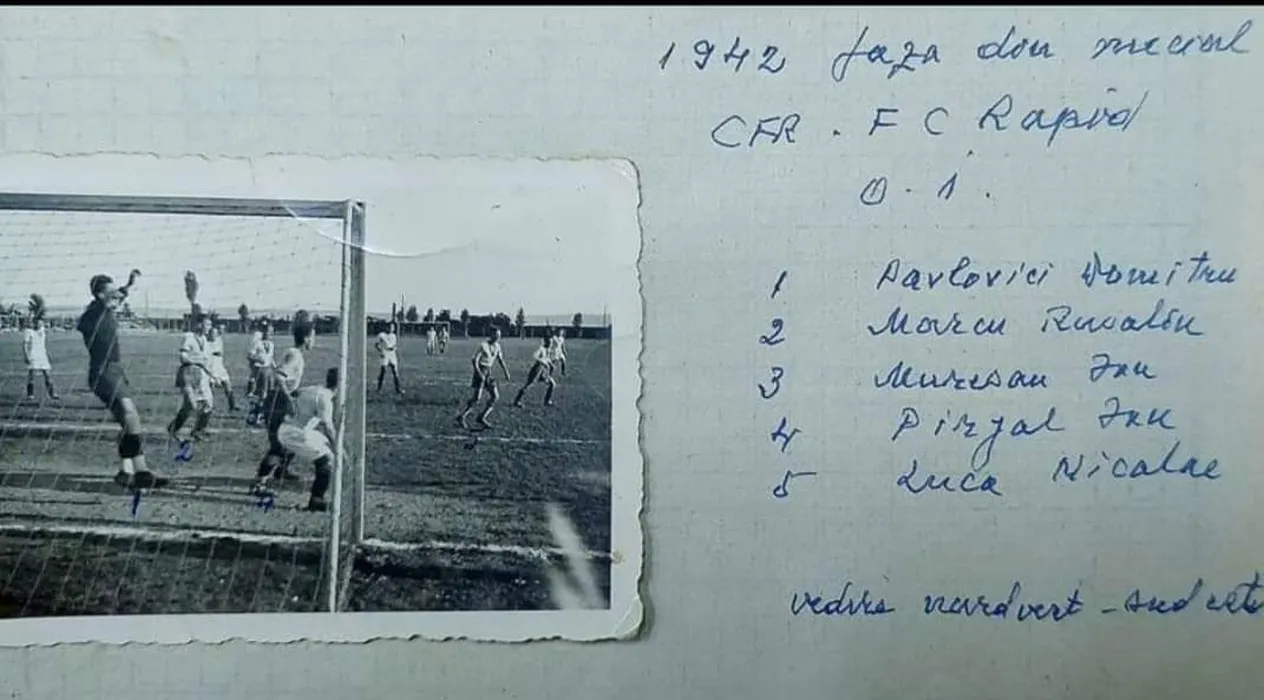 1942 faza din meciul
CFR . F C Rapid
0 - 1 .
1 Pavlovici Dumitru
2 Marcu Ruvalin
3 Muresan Ion
4 Pirjol Ion
5 Luca Nicolae
vedere nordvest - sud est
2
1
4